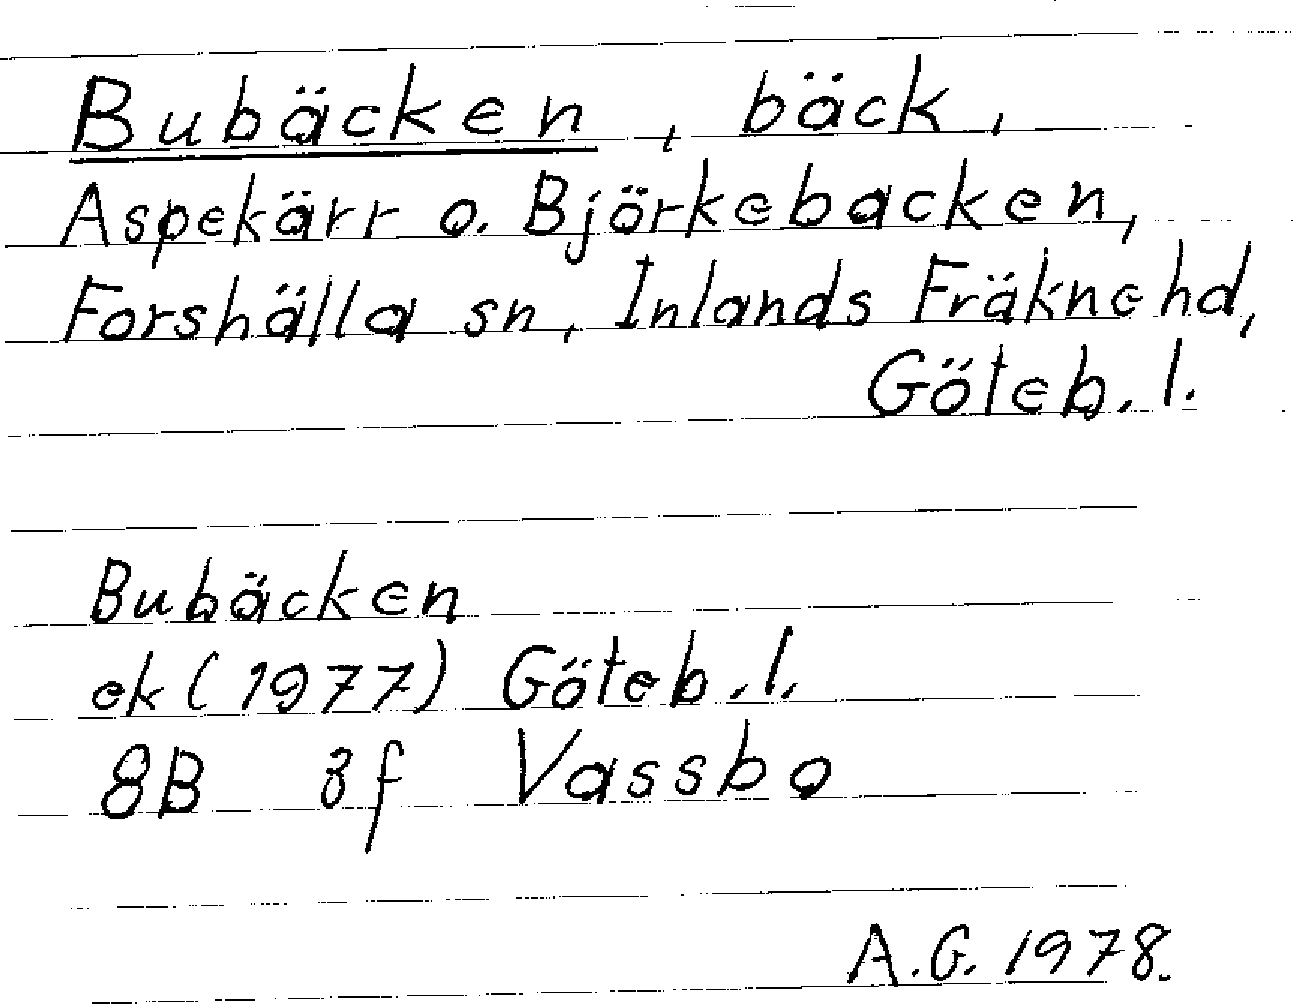 Bubäcken, bäck,
Aspekärr o. Björkebacken,
Forshälla sn, Inlands Fräknehd,
Göteb. l.
Bubäcken
ek (1977) Göteb. l.
8B 8f Vassbo
A.G. 1978.